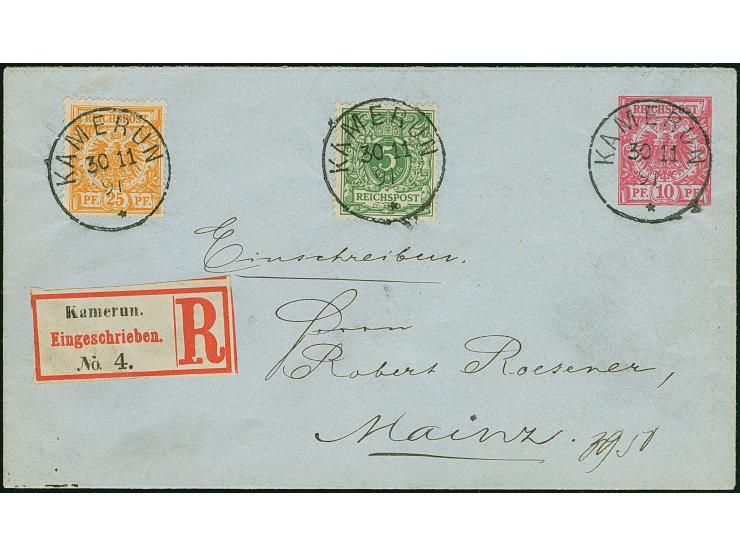 REICHSPOST
PF. 25 PF.
KAMERUN
30 11
91
*
5
REICHSPOST
KAMERUN
30 11
91
*
REICHSPOST
PF. 10 PF.
KAMERUN
30 11
91
*
Einschreiben.
Kamerun.
Eingeschrieben.
No. 4.
R
Herrn
Robert Roesener,
Mainz.